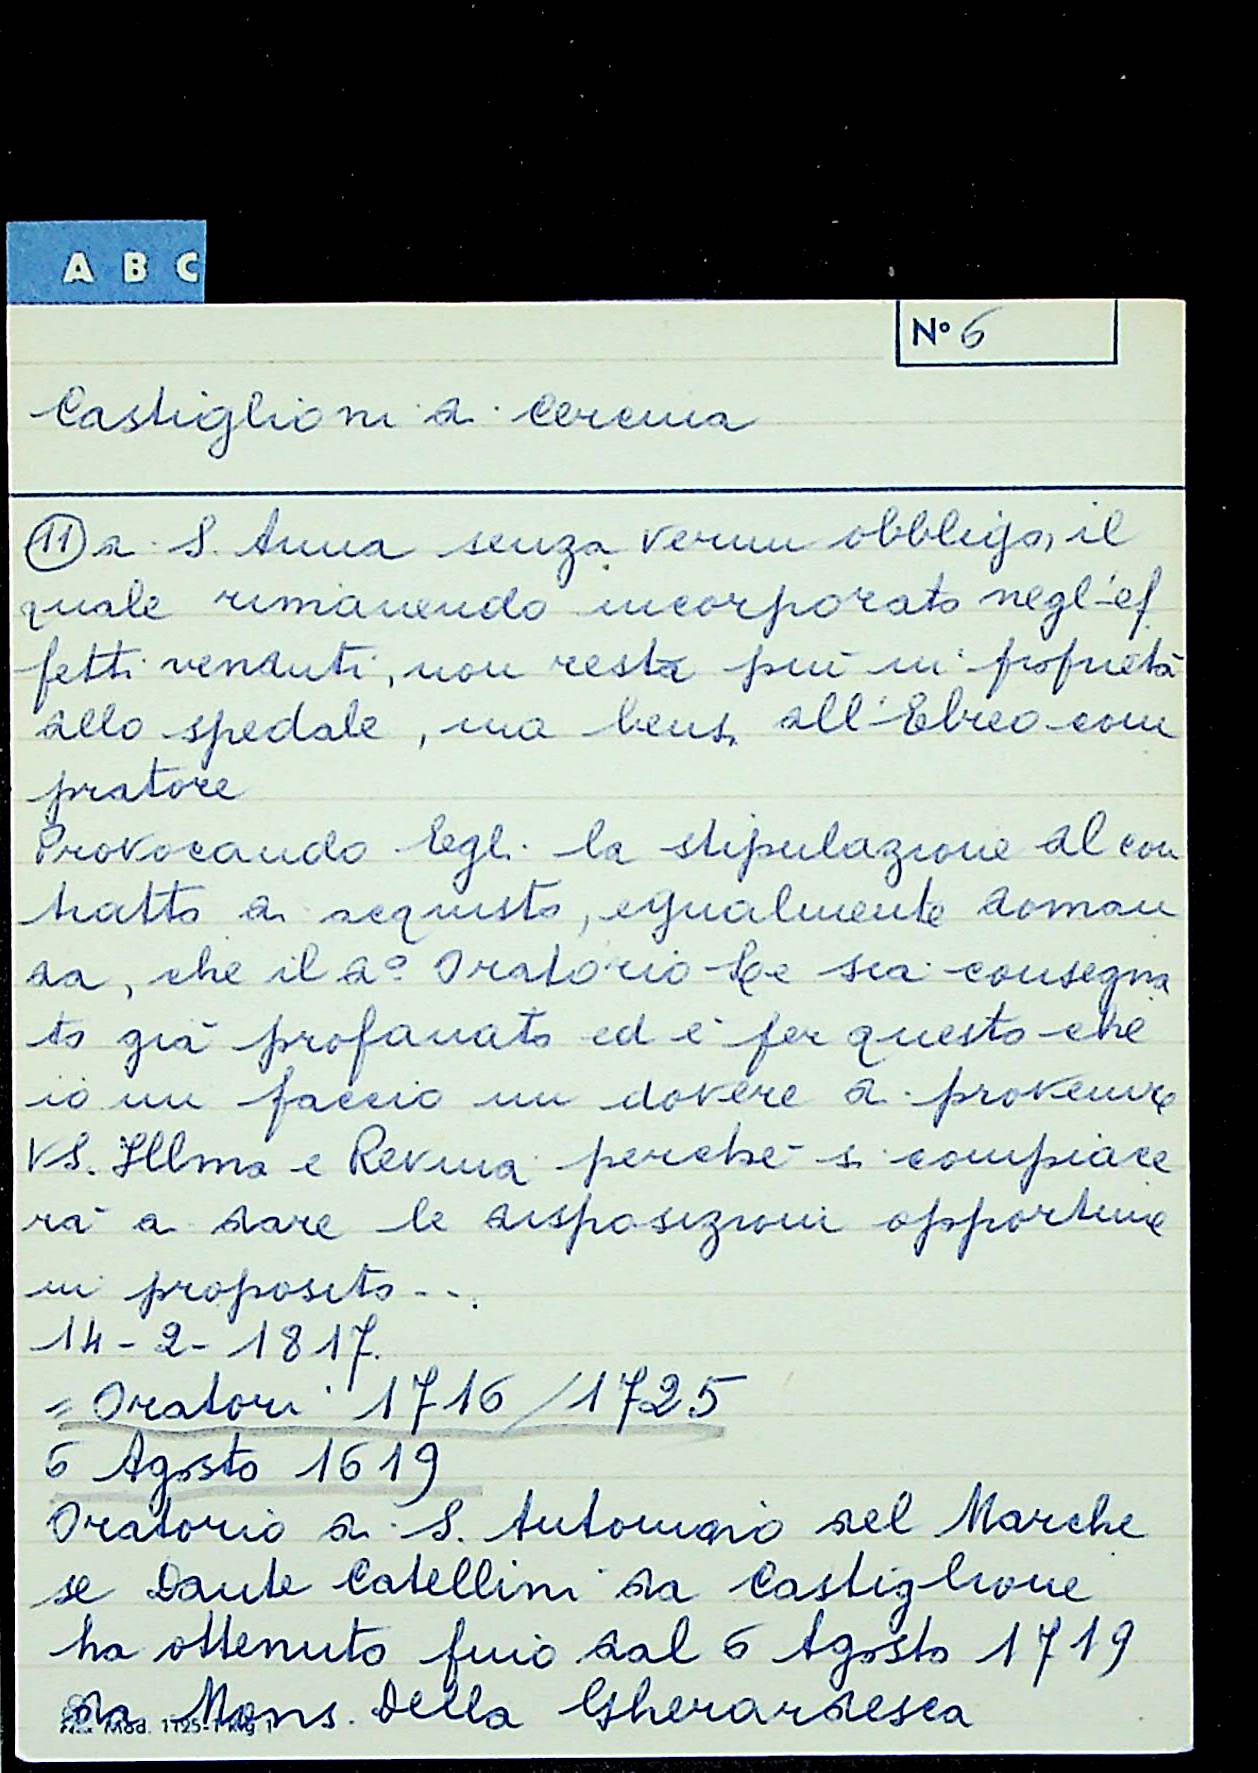 A B C
N° 6
Castiglioni di Cercina
11 di S. Anna senza verun obbligo, il
quale rimanendo incorporato negl'ef
fetti venduti, non resta più in proprietà
dello spedale, ma bensì all'Ebreo com
pratore
Provocando Egli la stipulazione al con
tratto di acquisto, egualmente doman
da, che il d° Oratorio Le sia consegna
to già profanato ed è per questo che
io mi faccio un dovere di provenire
VS. Illma e Revma perché si compiace
rà di dare le disposizioni opportune
in proposito...
14-2-1817.
= Oratori 1716/1725
6 Agosto 1619
Oratorio di S. Antonino del Marche
se Dante Catellini da Castiglione
ha ottenuto fino dal 6 Agosto 1719
da Mons. Della Gherardesca
Mod. 1125-1